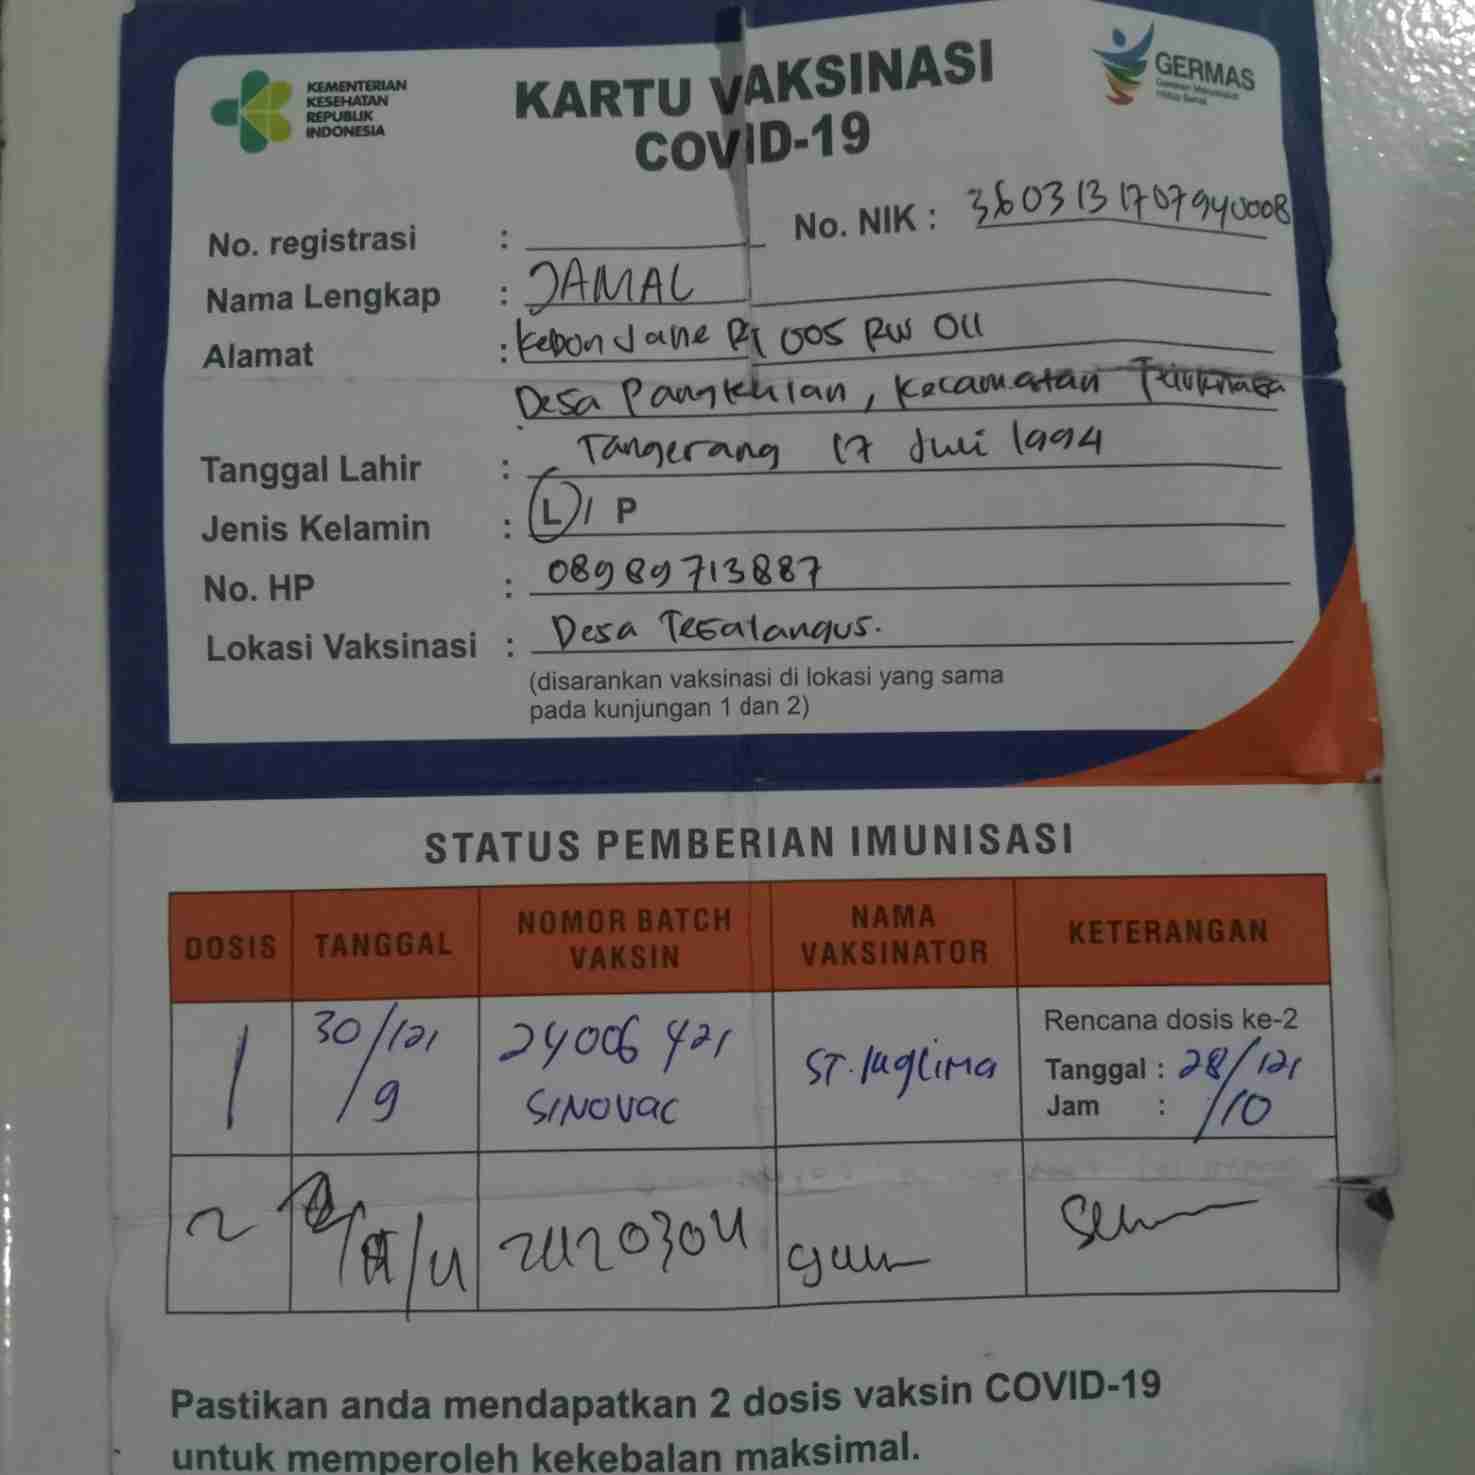 KEMENTERIAN
KESEHATAN
REPUBLIK
INDONESIA
KARTU VAKSINASI
COVID-19
GERMAS
No. registrasi :
No. NIK : 3603131707940008
Nama Lengkap : JAMAL
Alamat : Kebon Jane Rt 005 RW 011
Desa Pangkalan, Kecamatan
Tanggal Lahir : Tangerang 17 Juli 1994
Jenis Kelamin : L / P
No. HP : 08989713887
Lokasi Vaksinasi : Desa Tegalangus.
(disarankan vaksinasi di lokasi yang sama
pada kunjungan 1 dan 2)
STATUS PEMBERIAN IMUNISASI
DOSIS TANGGAL NOMOR BATCH VAKSIN NAMA VAKSINATOR KETERANGAN
1 30/9/21 24006421 SINOVAC ST. Rencana dosis ke-2
Tanggal : 28/10/21
Jam :
2
Pastikan anda mendapatkan 2 dosis vaksin COVID-19
untuk memperoleh kekebalan maksimal.